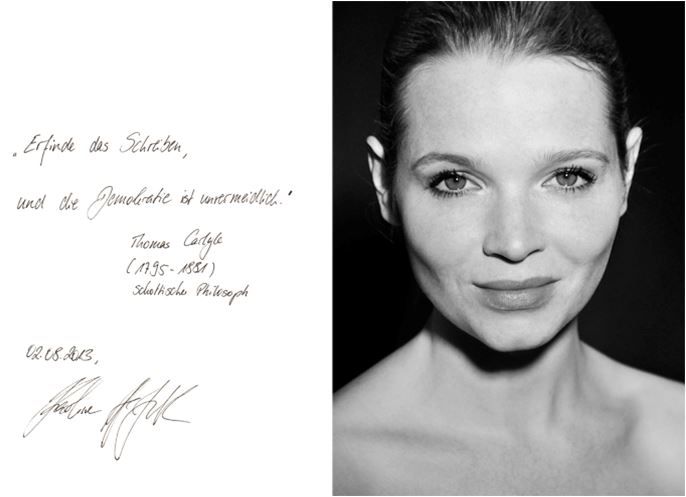 „Erfinde das Schreiben,
und die Demokratie ist unvermeidlich."
Thomas Carlyle
(1795-1881)
schottischer Philosoph
02.08.2013,